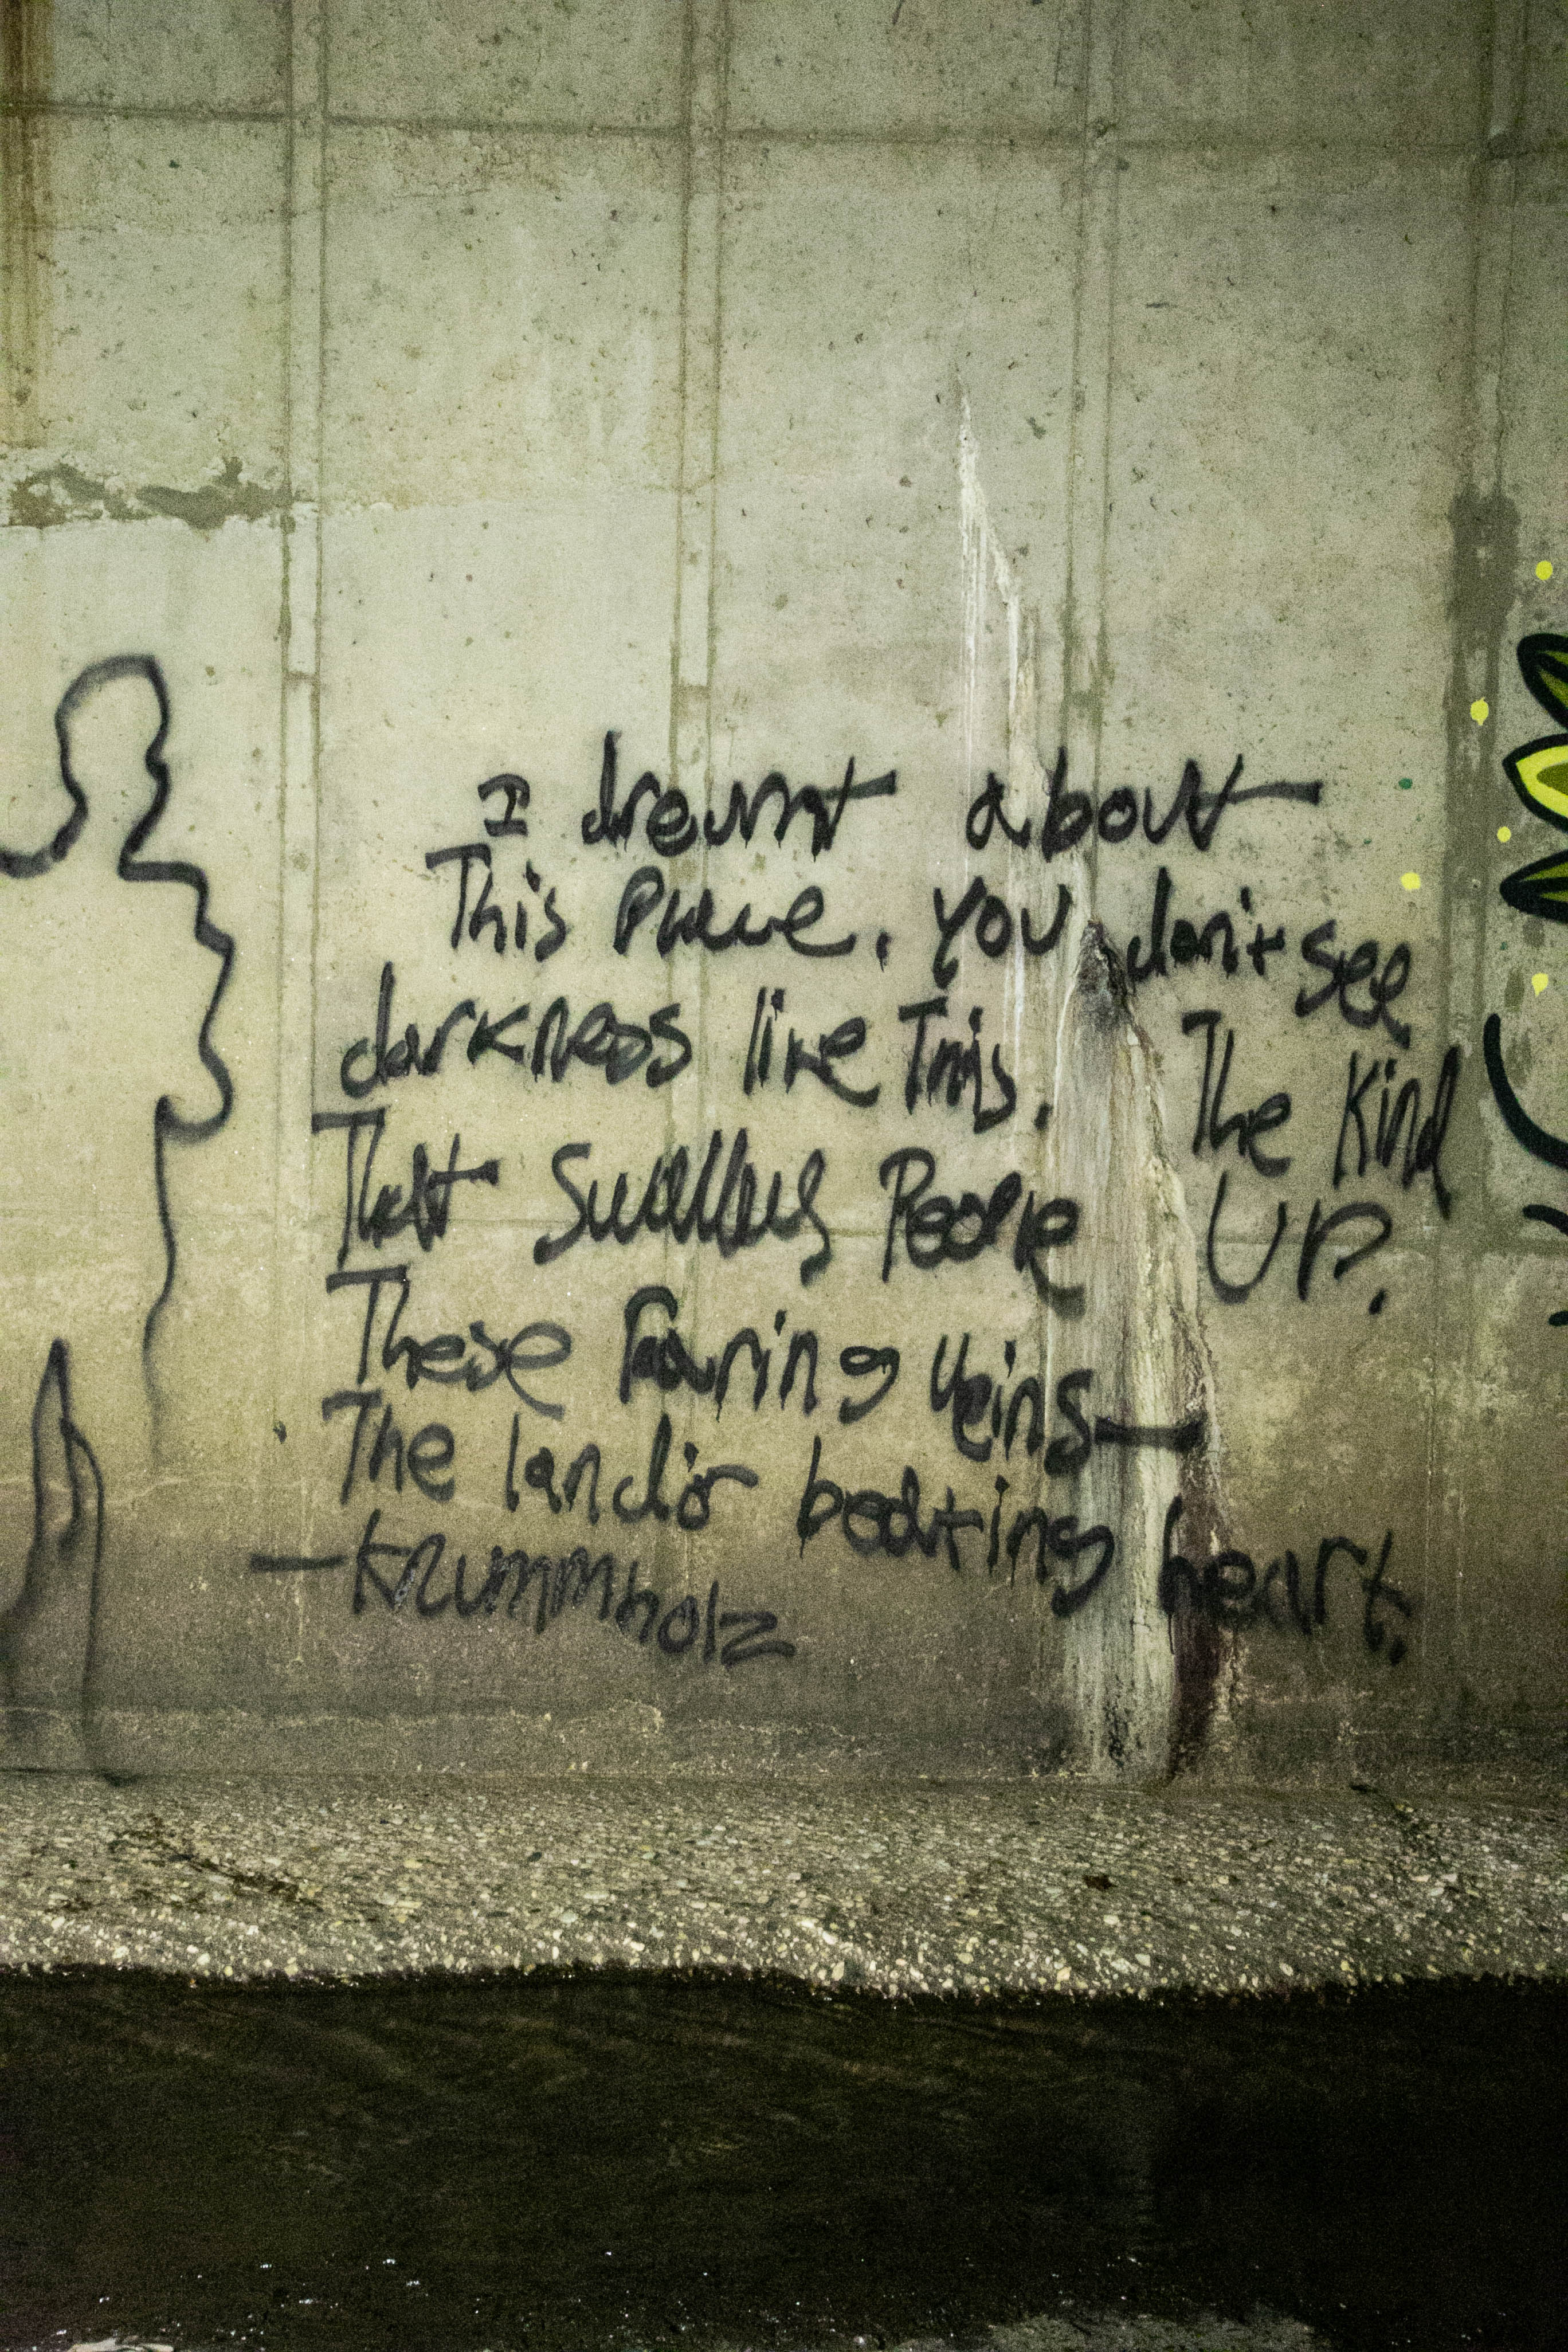 I dreamt about
This Place. You don't see
darkness like This. The Kind
That Swallows People UP.
These Roaring Veins—
The land's beating heart.
—Krummholz